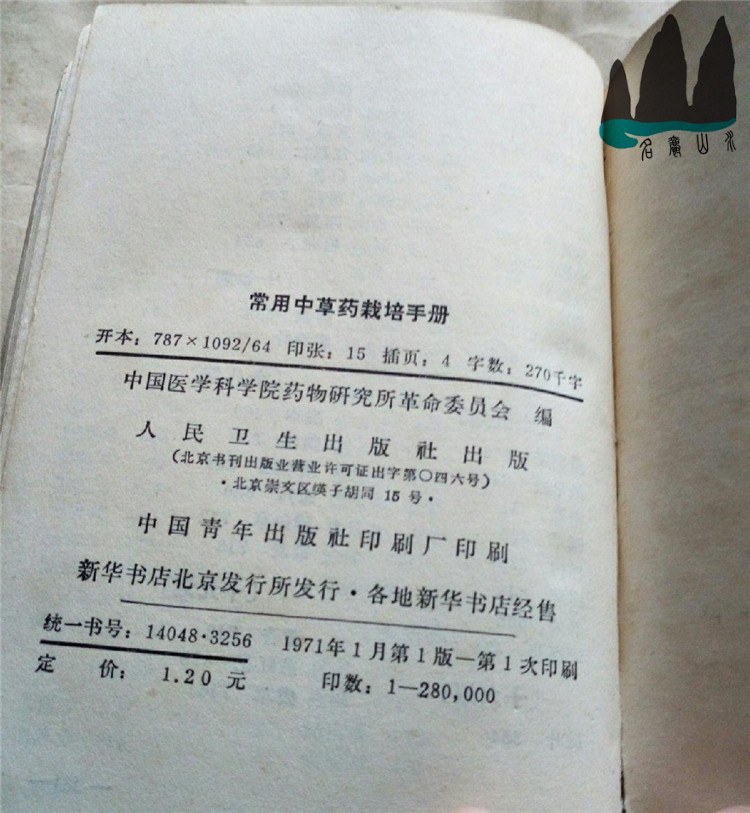 常用中草药栽培手册
开本：787×1092/64 印张：15 插页：4 字数：270千字
中国医学科学院药物研究所革命委员会 编
人民卫生出版社出版
(北京书刊出版业营业许可证出字第〇四六号)
·北京崇文区缨子胡同 15 号·
中国青年出版社印刷厂印刷
新华书店北京发行所发行·各地新华书店经售
统一书号：14048·3256 1971年1月第1版—第1次印刷
定 价：1.20 元 印数：1—280,000